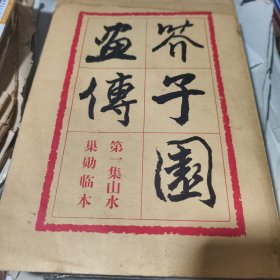 芥子園
畫傳
第一集山水
巢勋临本